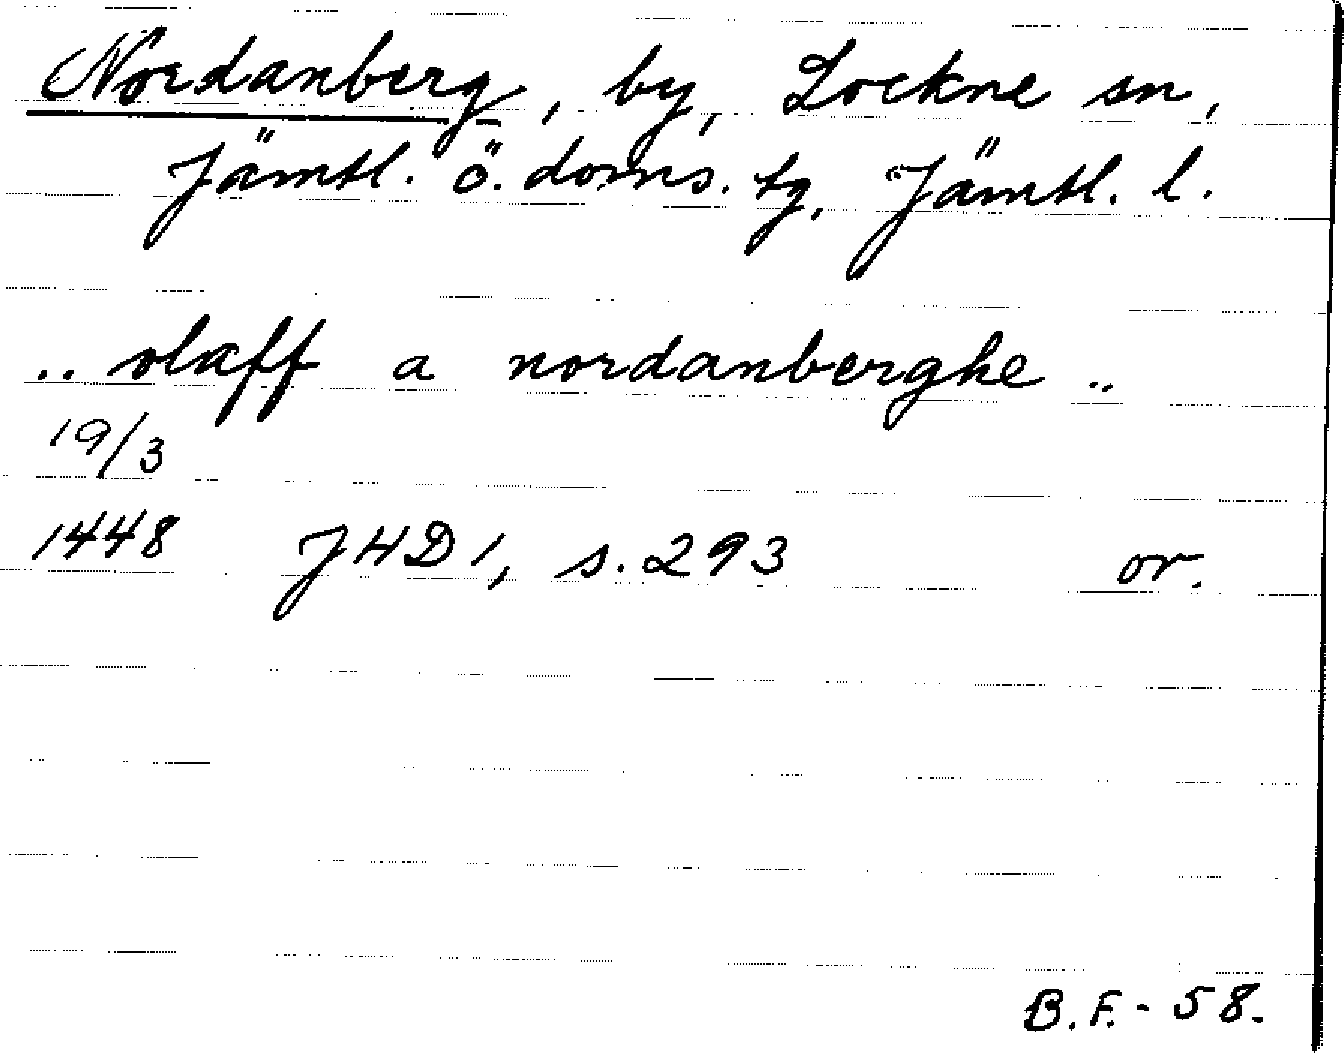 Nordanberg, by, Lockne sn,
Jämtl. ö. doms. tg, Jämtl. l.
.. olaff a nordanberghe ..
19/3
1448 JHD 1, s. 293 or.
B.F. - 58.